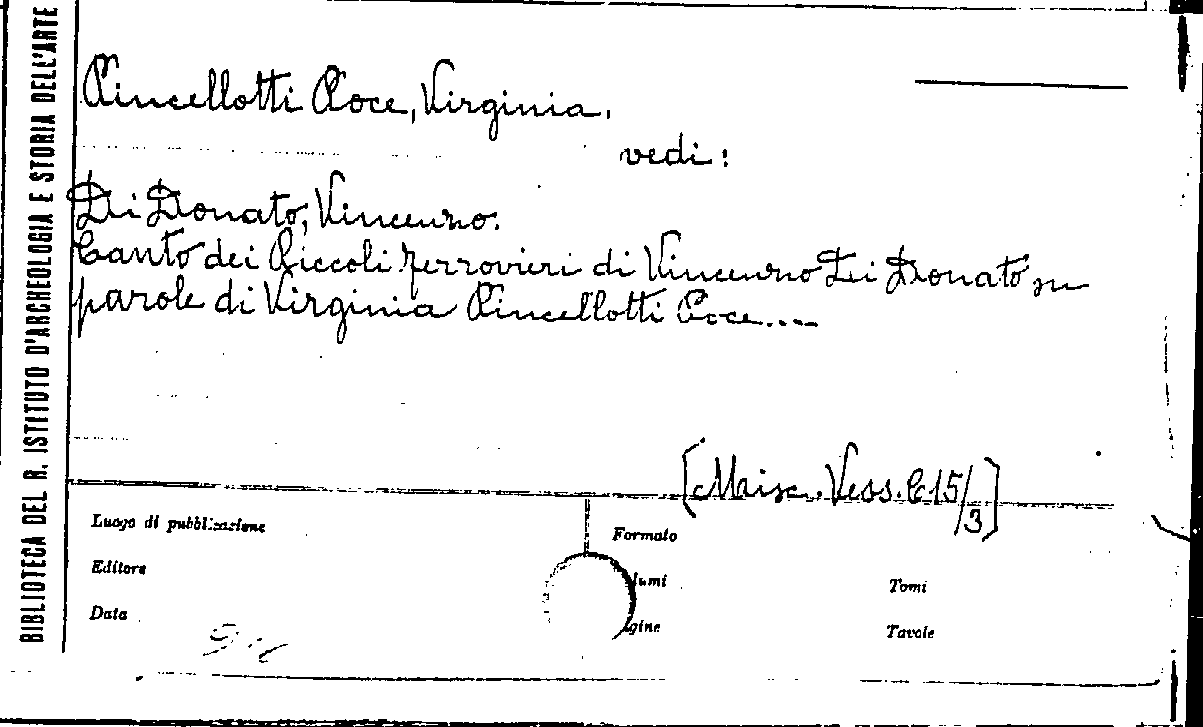 BIBLIOTECA DEL R. ISTITUTO D'ARCHEOLOGIA E STORIA DELL'ARTE
Pincellotti Poce, Virginia.
vedi:
Di Donato, Vincenzo.
Canto dei Piccoli ferrovieri di Vincenzo Di Donato su
parole di Virginia Pincellotti Poce....
[Misc. Vess. C 15/3]
Luogo di pubblicazione
Formato
Editore
lumi
Tomi
Data
gine
Tavole